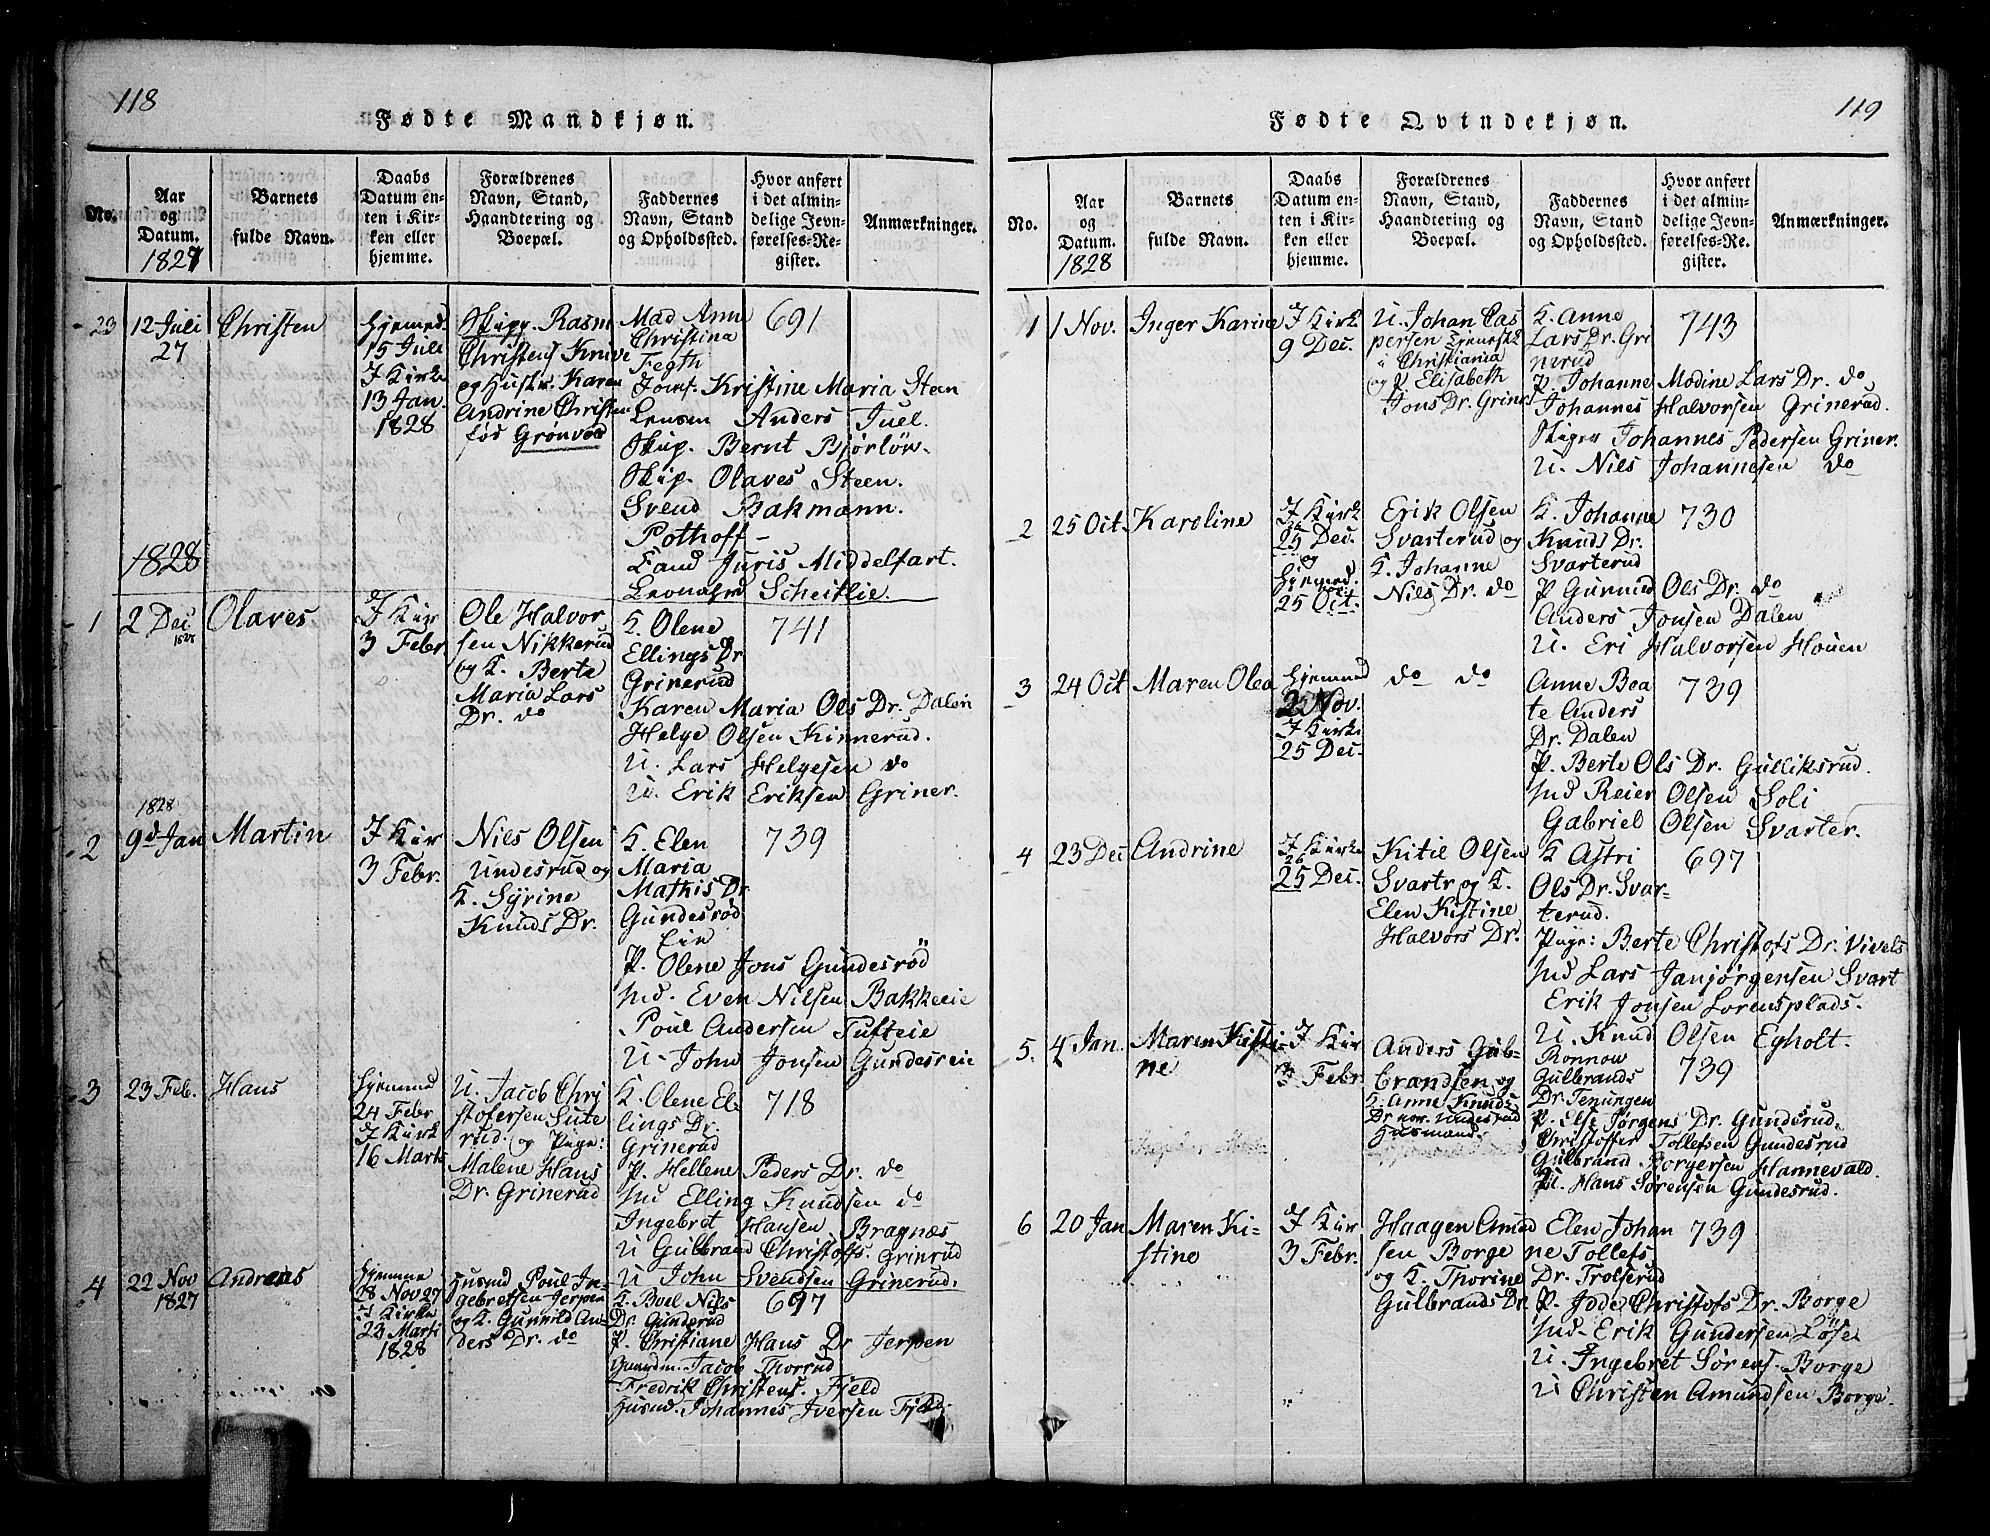 118
Fødte Mandkjøn.
No.
Aar og Datum.
1827
Barnets fulde Navn.
Daabs Datum enten i Kirken eller hjemme.
Forældrenes Navn, Stand, Haandtering og Boepæl.
Faddernes Navn, Stand og Opholdsted.
Hvor anført i det almindelige Jevnførelses-Register.
Anmærkninger.
23
12 Juli
27
Christen
Hjemed.
15 Juli
I Kirke
13 Jan.
1828
Skipp. Rasm
Christens Knive
og Hustr. Karen
Andrine Christen
fød Grönvod
Mad Ann
Christina
Fegth
Jomf. Kristine Maria Steen
Anders Juel.
Skip. Bernt Bjørlöv.
Skip. Olaves Steen.
Svend Bakmann.
Pothoff -
Cand Juris Middelfart.
Scheitlie.
691
1828
1
2 Dec
Olaves.
I Kir
3 Febr
Ole Halvor
sen Nikkerud
og K. Berte
Maria Lars
Dr. do
K. Olene
Ellings Dr
Grinerud
Karen Maria Ols Dr. Dalen
Helge Olsen Kinnerud.
U. Lars Helgesen do
U. Erik Eriksen Griner.
741
2
1828
9d Jan
Martin
I Kir
3 Febr.
Nils Olsen
Undesrud og
K. Syrine
Knuds Dr.
K. Elen
Maria
Mathis Dr
Gundesrød
Eie
P. Olene Jons Gundesröd
Hud. Even Nilsen Bakkeeie
Poul Andersen Tufteie
U. John Jonsen Gundesreie
739
3
23 Feb.
Hans
Hjemmed
24 Febr
I Kirk
16 Marts
U. Jacob Chri
stofersen Sute
rud. og Pige:
Malene Hans
Dr. Grinerud
K. Olene El-
lings Dr.
Grinerud
P. Hellene Peders Dr. do
Hud Elling Knudsen do
Ingebret Hansen Bragnæs
U Gulbrand Christoffs. Grinrud
U John Svendsen Grinerud.
718
4
22 Nov
1827
Andreas
Hjemme
28 Nov 27
I Kirke
23 Marti
1828
Husmd Poul In-
gebretsen Jerpen
og K. Gunnild An-
ders Dr. do
K. Boel Nils
Dr. Gunderud
P. Christiane Hans Dr Jerpen
Jacob Thorrud
Fredrik Christens. Fjeld
Husmd. Johannes Iversen Fjeld.
697
119
Fødte Qvindekjøn.
No.
Aar og Datum.
1828
Barnets fulde Navn.
Daabs Datum enten i Kirken eller hjemme.
Forældrenes Navn, Stand, Haandtering og Boepæl.
Faddernes Navn, Stand og Opholdsted.
Hvor anført i det almindelige Jevnførelses-Register.
Anmærkninger.
1
1 Nov.
Inger Karine
I Kirk
9 Dec.
U. Johan Cas
persen Tjenestk
i Christiania
og P Elisabeth
Jons Dr. Griner
K. Anne
Lars Dr. Gri
nerud
P. Johanne Modine Lars Dr. do
Johannes Halvorsen Grinerud.
Johannes Pedersen Griner.
U. Nils Johannesen do
743
2
25 Oct.
Karoline
I Kirk
26
25 Dec.
og
Hjemed.
25 Oct.
Erik Olsen
Svarterud og
K. Johanne
Nils Dr. do
K. Johanne
Knuds Dr.
Svarterud
P Gunnild Ols Dr. do
Anders Jonsen Dalen
U. Eri Halvorsen Houen
730
3
24 Oct
Maren Olea
Hjemmed
2 Nov.
I Kirke
25 Dec.
do do
Anne Bea
te Anders
Dr. Dalen
P. Berte Ols Dr. Gulliksrud.
Hud Reier Olsen Soli
Gabriel Olsen Svarter.
739
4
23 Dec
Andrine
I Kirke
26
25 Dec.
Kitil Olsen
Svartr og K.
Elen Kistine
Halvors Dr.
K Astri
Ols Dr. Svar-
terud.
Pige: Berte Christofs Dr. Vivels
Hud Lars Janjørgensen Svart
Erik Jonsen Lorensplads.
U. Knud Olsen Egholt.
697
5.
4 Jan.
Maren Kisti
ne
I Kir
3 Febr
Anders Gul-
brandsen og
K. Anne Knuds
Dr nor. Undesrud
Husmand.
Ronnow
Gulbrands
Dr. Jenungen
P. Else Jørgens Dr. Gundesrud.
Christoffer Tollefsen Gundesrud
Gulbrand Borgersen Hannevald.
U. Hans Sörensen Gundesrud.
739
6
20 Jan
Maren Ki-
stine
I Kir
3 Febr.
Haagen Amud
sen Borge
og K. Thorine
Gulbrands Dr.
Elen Johan
ne Tollefs
Dr. Trolserud
P. Jdde Christofs Dr. Borge
Hud- Erik Gundersen Löse
U. Ingebret Sørens. Borge
U Christen Amundsen Borge.
739